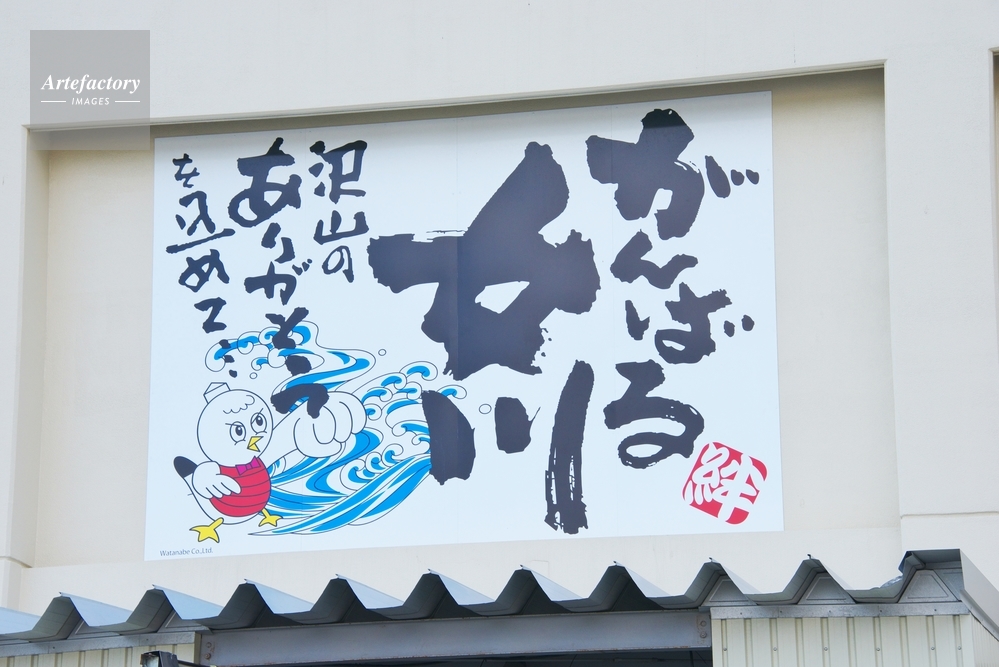 Artefactory
IMAGES
がんばる
女川
絆
沢山の
ありがとう
を込めて…
Watanabe Co.,Ltd.